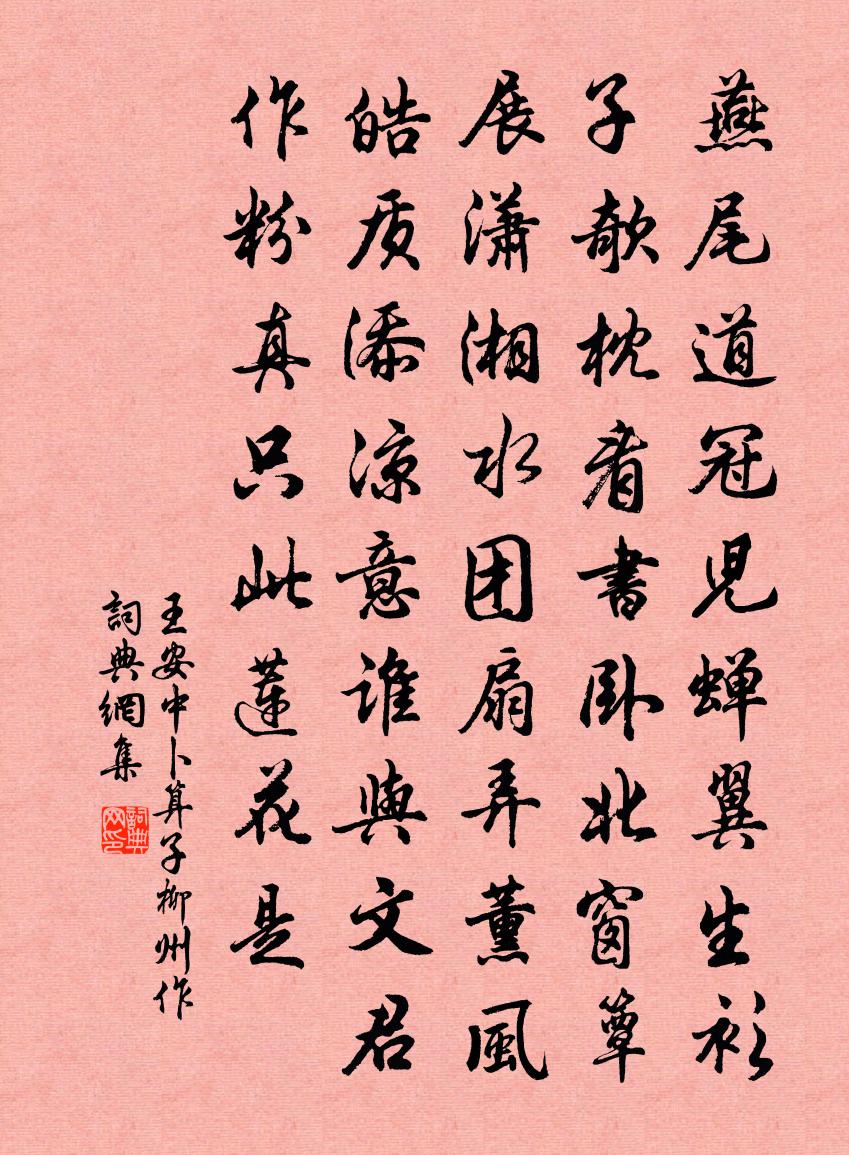 燕尾道冠兒蝉翼生衫
子欹枕看書卧北窗簟
展瀟湘水团扇弄薰風
皓质添凉意谁與文君
作粉真只此蓮花是
王安中卜算子柳州作
詞典網集
詞典网印